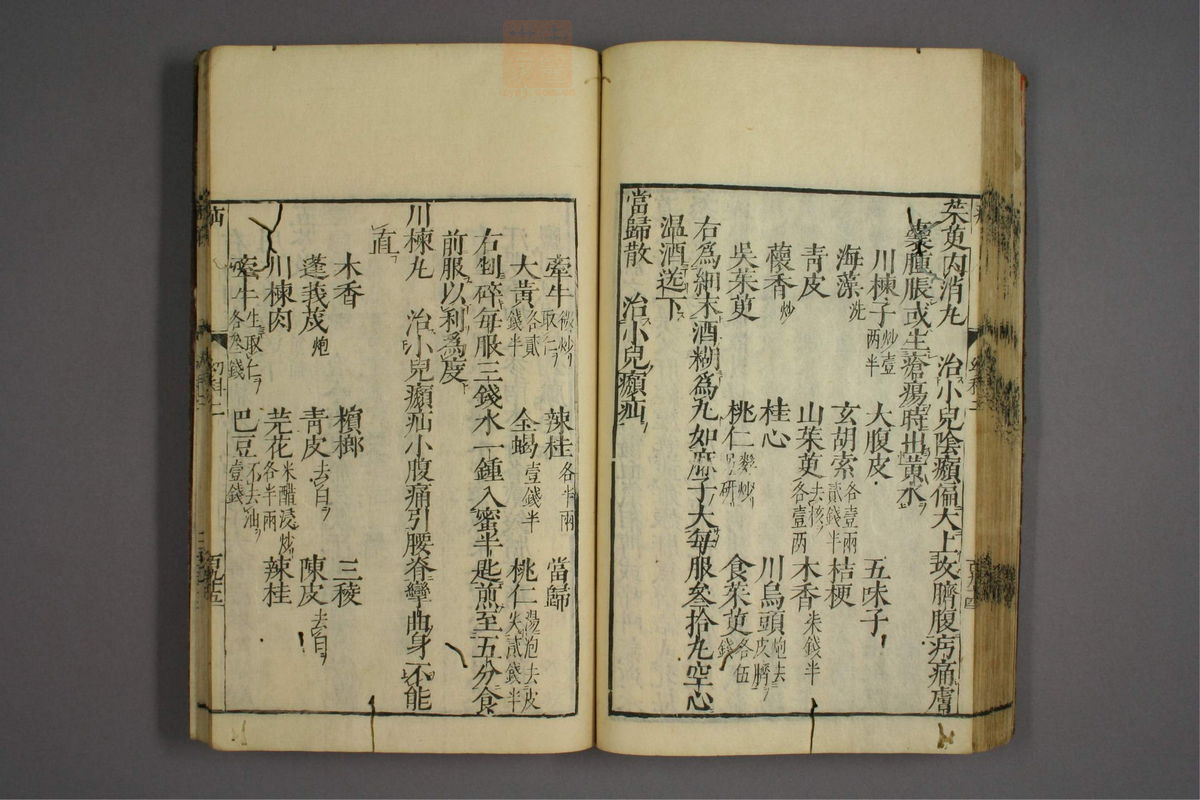 茱萸内消丸　治小兒陰㿗偏大上攻臍腹疞痛膚
囊腫脹或生瘡瘍時出黄水
川楝子炒壹两半　大腹皮　五味子
海藻洗　玄胡索各壹兩貳錢半　桔梗
青皮　山茱萸去核各壹两　木香柒錢半
蘹香炒　桂心　川烏頭炮去皮臍
吳茱萸　桃仁麩炒別研　食茱萸各伍錢
右爲細末酒糊爲丸如麻子大每服叁拾丸空心
温酒送下
當歸散　治小兒㿗疝
牽牛微炒取仁　辣桂各半兩　當歸
大黄各貳錢半　全蝎壹錢半　桃仁湯泡去皮尖貳錢半
右剉碎每服三錢水一鍾入蜜半匙煎至五分食
前服以利爲度
川楝丸　治小兒㿗疝小腹痛引腰脊攣曲身不能
直
木香　檳榔　三稜
蓬莪茂炮　青皮去白　陳皮去白
川楝肉　芫花米醋浸炒各半兩　辣桂
牽牛生取仁各貳錢　巴豆不去油壹錢
百九十四
百九十五